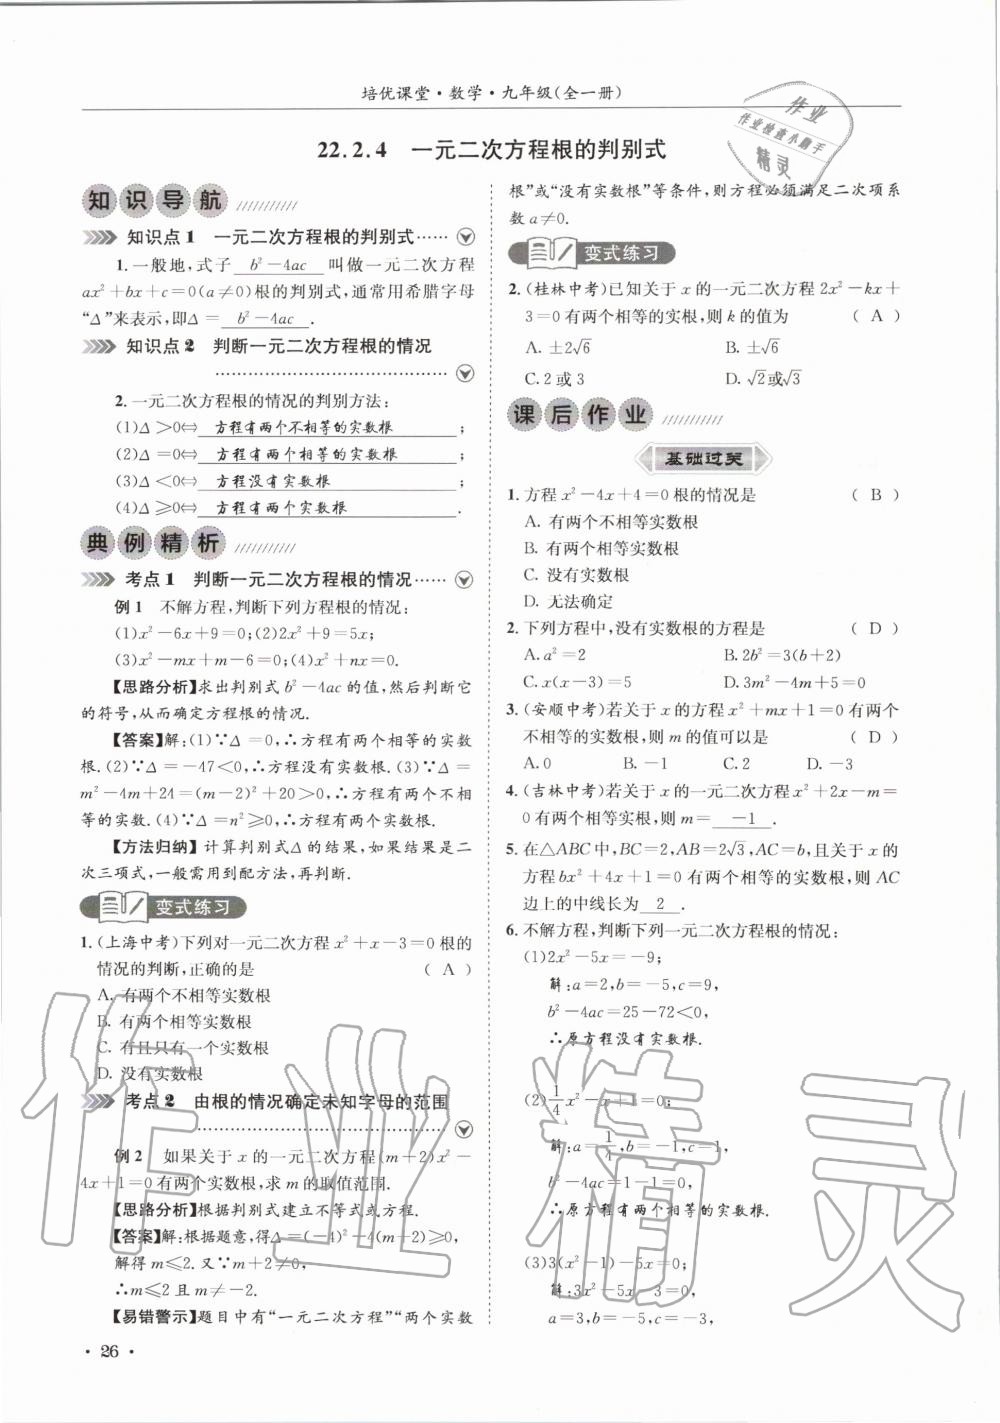 培优课堂·数学·九年级(全一册)
作业
作业检查小助手
精灵
22.2.4 一元二次方程根的判别式
知识导航
知识点1 一元二次方程根的判别式……
1.一般地,式子 b²-4ac 叫做一元二次方程
ax²+bx+c=0(a≠0)根的判别式,通常用希腊字母
“Δ”来表示,即Δ= b²-4ac .
知识点2 判断一元二次方程根的情况
2.一元二次方程根的情况的判别方法:
(1)Δ>0⇔ 方程有两个不相等的实数根 ;
(2)Δ=0⇔ 方程有两个相等的实数根 ;
(3)Δ<0⇔ 方程没有实数根 ;
(4)Δ≥0⇔ 方程有两个实数根 .
典例精析
考点1 判断一元二次方程根的情况……
例1 不解方程,判断下列方程根的情况:
(1)x²-6x+9=0;(2)2x²+9=5x;
(3)x²-mx+m-6=0;(4)x²+nx=0.
【思路分析】求出判别式b²-4ac的值,然后判断它
的符号,从而确定方程根的情况.
【答案】解:(1)∵Δ=0,∴方程有两个相等的实数
根.(2)∵Δ=-47<0,∴方程没有实数根.(3)∵Δ=
m²-4m+24=(m-2)²+20>0,∴方程有两个不相
等的实数.(4)∵Δ=n²≥0,∴方程有两个实数根.
【方法归纳】计算判别式Δ的结果,如果结果是二
次三项式,一般需用到配方法,再判断.
变式练习
1.(上海中考)下列对一元二次方程x²+x-3=0根的
情况的判断,正确的是 ( A )
A. 有两个不相等实数根
B. 有两个相等实数根
C. 有且只有一个实数根
D. 没有实数根
考点2 由根的情况确定未知字母的范围
例2 如果关于x的一元二次方程(m+2)x²-
4x+1=0有两个实数根,求m的取值范围.
【思路分析】根据判别式建立不等式或方程.
【答案】解:根据题意,得Δ=(-4)²-4(m+2)≥0,
解得m≤2.又∵m+2≠0,
∴m≤2且m≠-2.
【易错警示】题目中有“一元二次方程”“两个实数
·26·
根”或“没有实数根”等条件,则方程必须满足二次项系
数a≠0.
变式练习
2.(桂林中考)已知关于x的一元二次方程2x²-kx+
3=0有两个相等的实根,则k的值为 ( A )
A. ±2√6 B. ±√6
C. 2或3 D. √2或√3
课后作业
基础过关
1.方程x²-4x+4=0根的情况是 ( B )
A. 有两个不相等实数根
B. 有两个相等实数根
C. 没有实数根
D. 无法确定
2.下列方程中,没有实数根的方程是 ( D )
A.a²=2 B.2b²=3(b+2)
C.x(x-3)=5 D.3m²-4m+5=0
3.(安顺中考)若关于x的方程x²+mx+1=0有两个
不相等的实数根,则m的值可以是 ( D )
A.0 B.-1 C.2 D.-3
4.(吉林中考)若关于x的一元二次方程x²+2x-m=
0有两个相等的实数根,则m= -1 .
5.在△ABC中,BC=2,AB=2√3,AC=b,且关于x的
方程bx²+4x+1=0有两个相等的实数根,则AC
边上的中线长为 2 .
6.不解方程,判断下列一元二次方程根的情况:
(1)2x²-5x=-9;
解:a=2,b=-5,c=9,
b²-4ac=25-72<0,
∴原方程没有实数根.
(2)1/4x²-x+1=0;
解:a=1/4,b=-1,c=1,
b²-4ac=1-1=0,
∴原方程有两个相等的实数根.
(3)3(x²-1)-5x=0;
解:3x²-5x-3=0,
a=3,b=-5,c=-3,
作业精灵